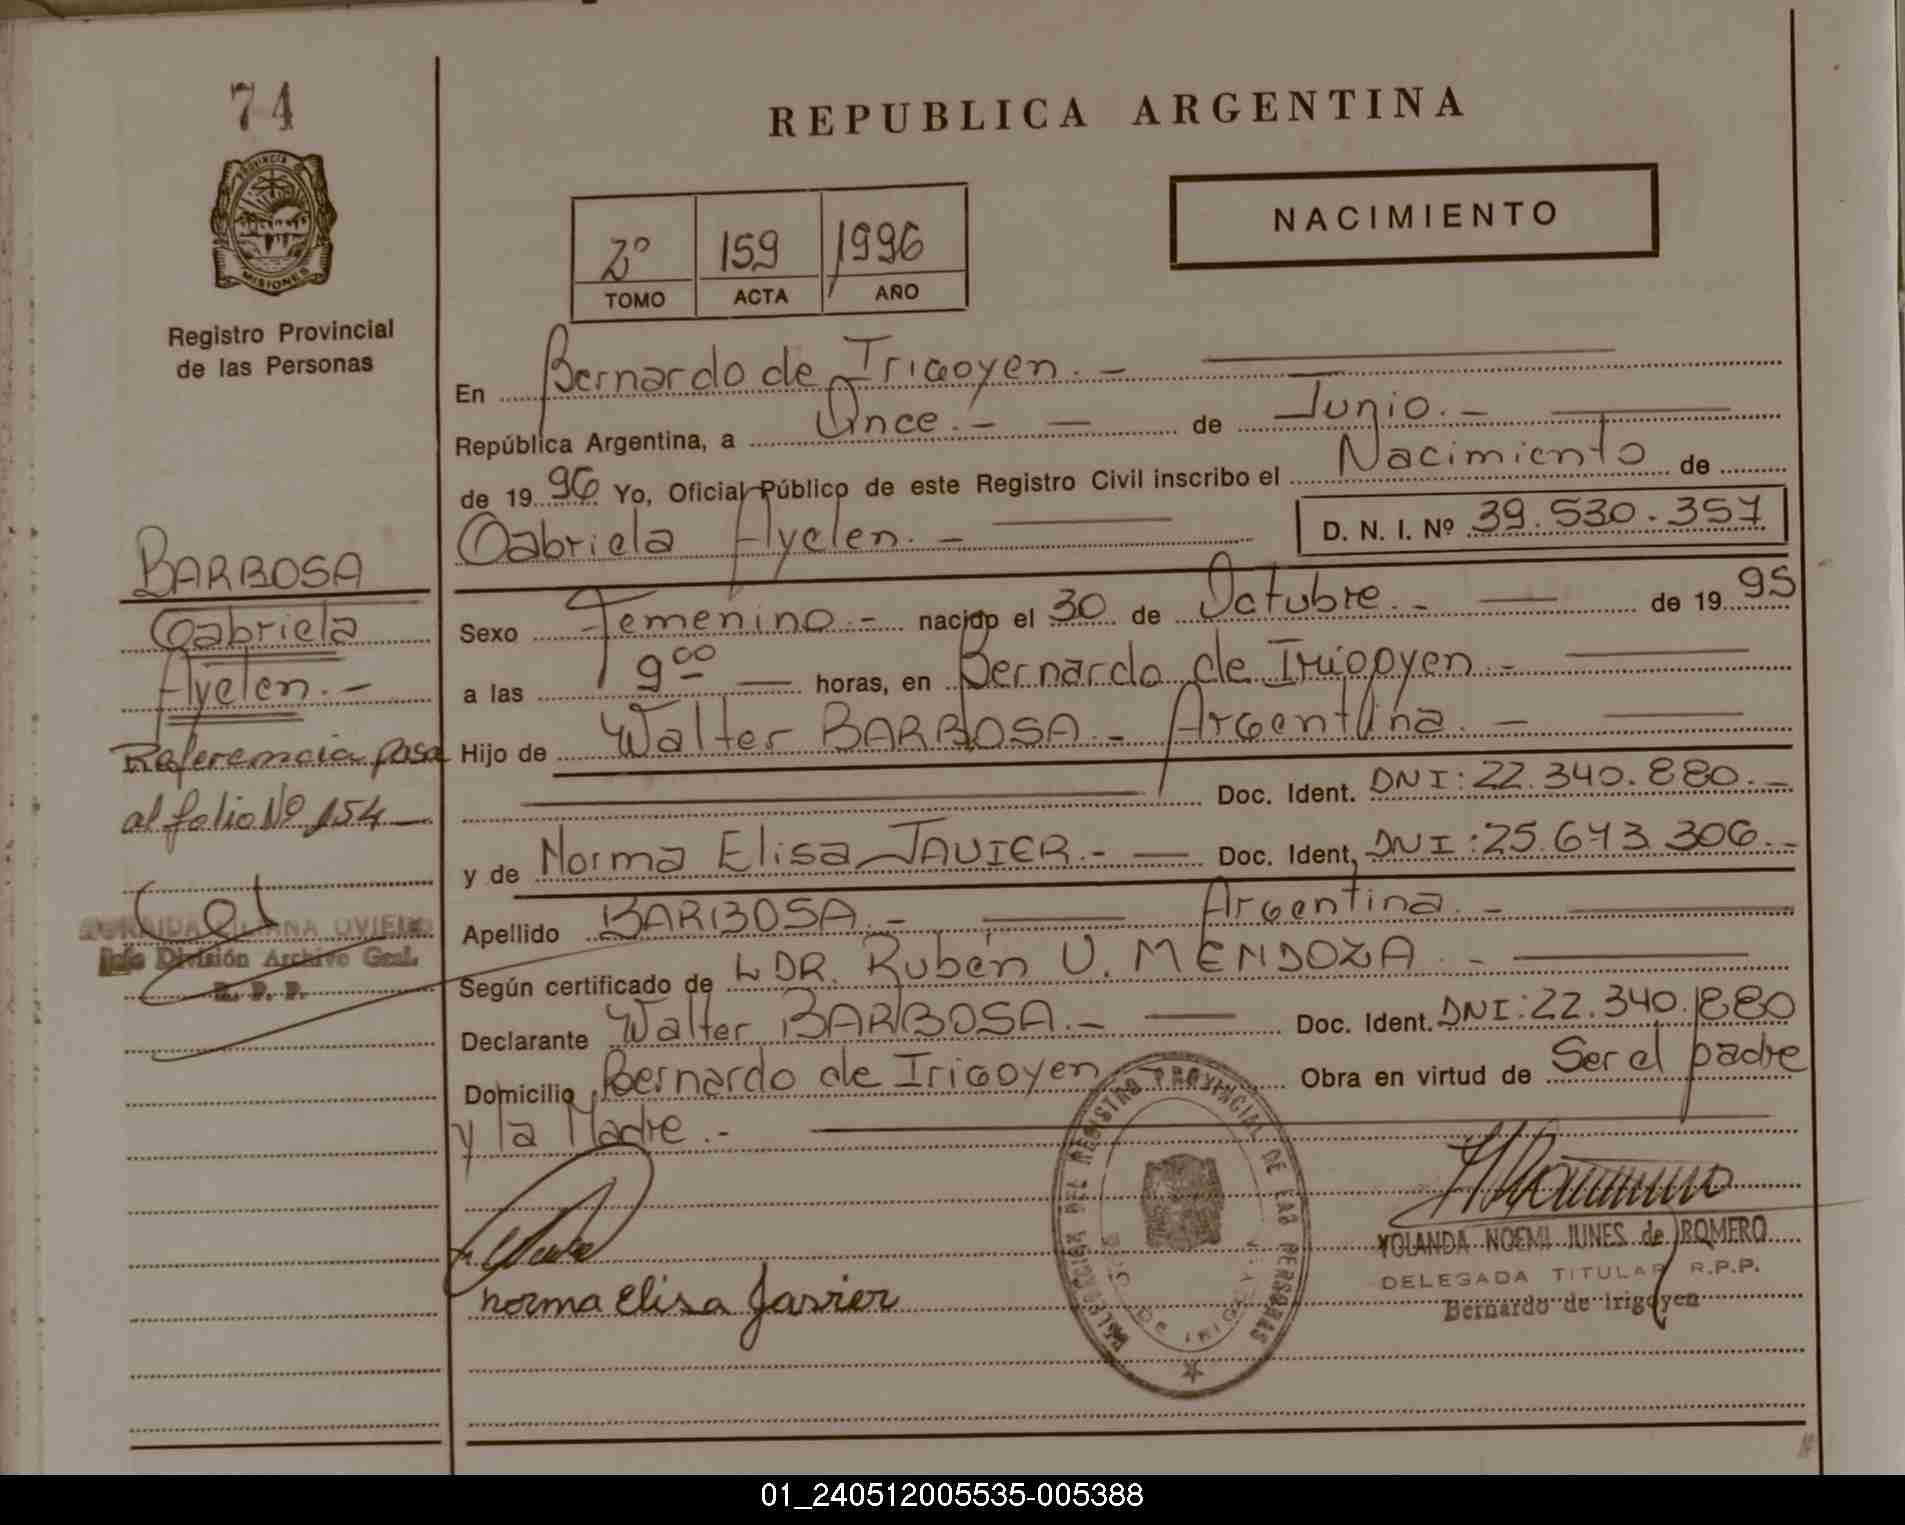 74
PROVINCIA DE
MISIONES
Registro Provincial
de las Personas
BARBOSA
Gabriela
Ayelen.-
Referencia pasa
al folio Nº 154
OVIEDO
División Archivo Gral.
R. P. P.
REPUBLICA ARGENTINA
2º 159 1996
TOMO ACTA AÑO
NACIMIENTO
En Bernardo de Irigoyen.-
República Argentina, a Once.- de Junio.-
de 19 96 Yo, Oficial Público de este Registro Civil inscribo el Nacimiento de
Gabriela Ayelen.- D. N. I. Nº 39.530.357
Sexo Femenino.- nacido el 30 de Octubre.- de 19 95
a las 9 00 horas, en Bernardo de Irigoyen.-
Hijo de Walter BARBOSA.- Argentina.-
Doc. Ident. DNI: 22.340.880.-
y de Norma Elisa JAVIER.- Doc. Ident. DNI: 25.673.306.-
Apellido BARBOSA.- Argentina.-
Según certificado de DR. Rubén U. MENDOZA.-
Declarante Walter BARBOSA.- Doc. Ident. DNI: 22.340.880
Domicilio Bernardo de Irigoyen Obra en virtud de Ser el padre
y la Madre.-
DELEGACION DEL REGISTRO PROVINCIAL DE LAS PERSONAS
BDO. DE IRIGOYEN
norma elisa Javier
YOLANDA NOEMI JUNES de ROMERO
DELEGADA TITULAR R.P.P.
Bernardo de Irigoyen
01_240512005535-005388